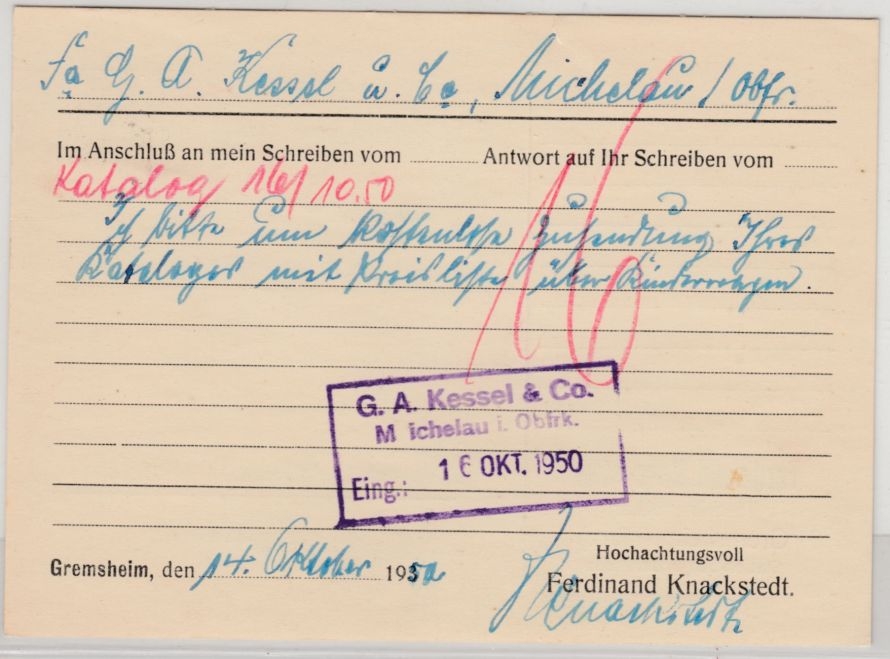 Fa G. A. Kessel u. Co, Michelau / Obfr.
Im Anschluß an mein Schreiben vom ........ Antwort auf Ihr Schreiben vom ........
Katalog 16/10.50
16
Ich bitte um kostenlose Zusendung Ihres
Kataloges mit Preisliste über Kinderwagen.
G. A. Kessel & Co.
Michelau i. Obfrk.
Eing.: 16 OKT. 1950
Hochachtungsvoll
Gremsheim, den 14. Oktober 1950
Ferdinand Knackstedt.
Knackstedt